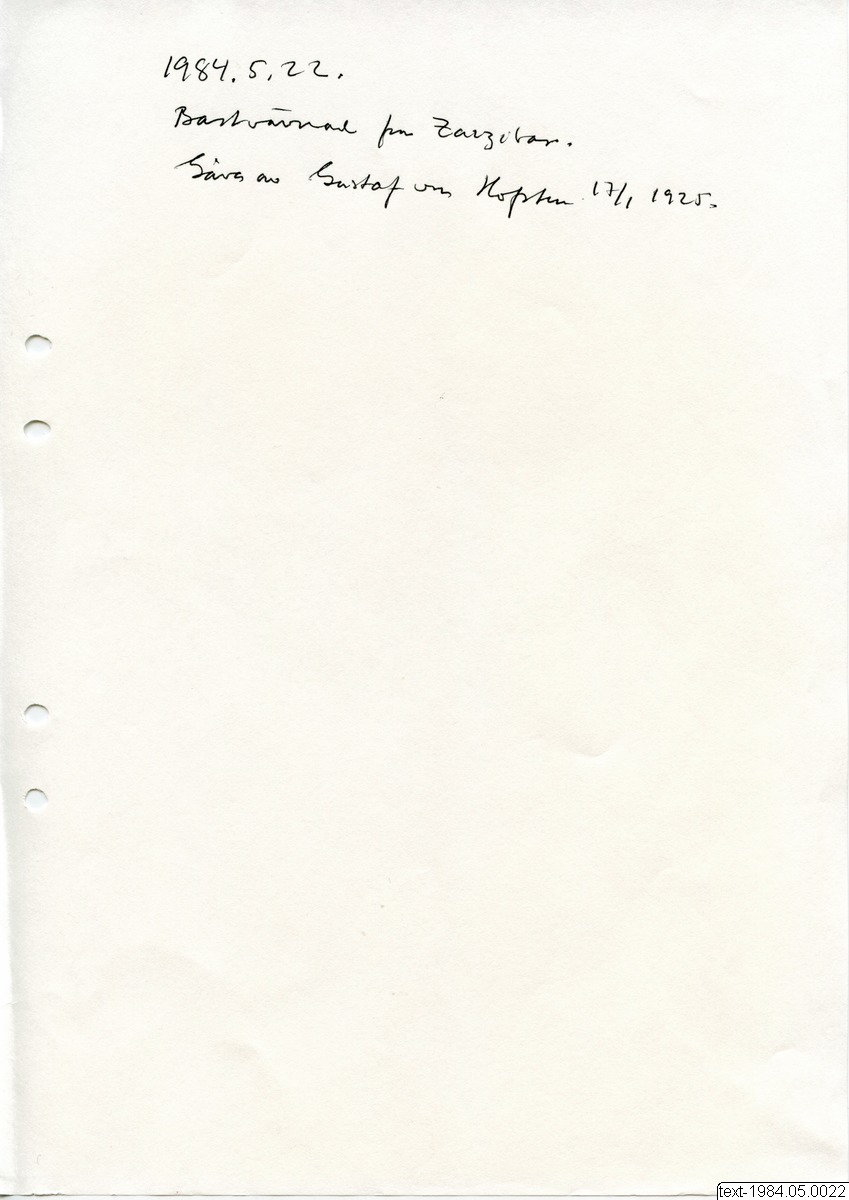 1984.5.22.
Bastvävnad från Zanzibar.
Gåva av Gustaf von Hofsten 17/1 1925.
text-1984.05.0022